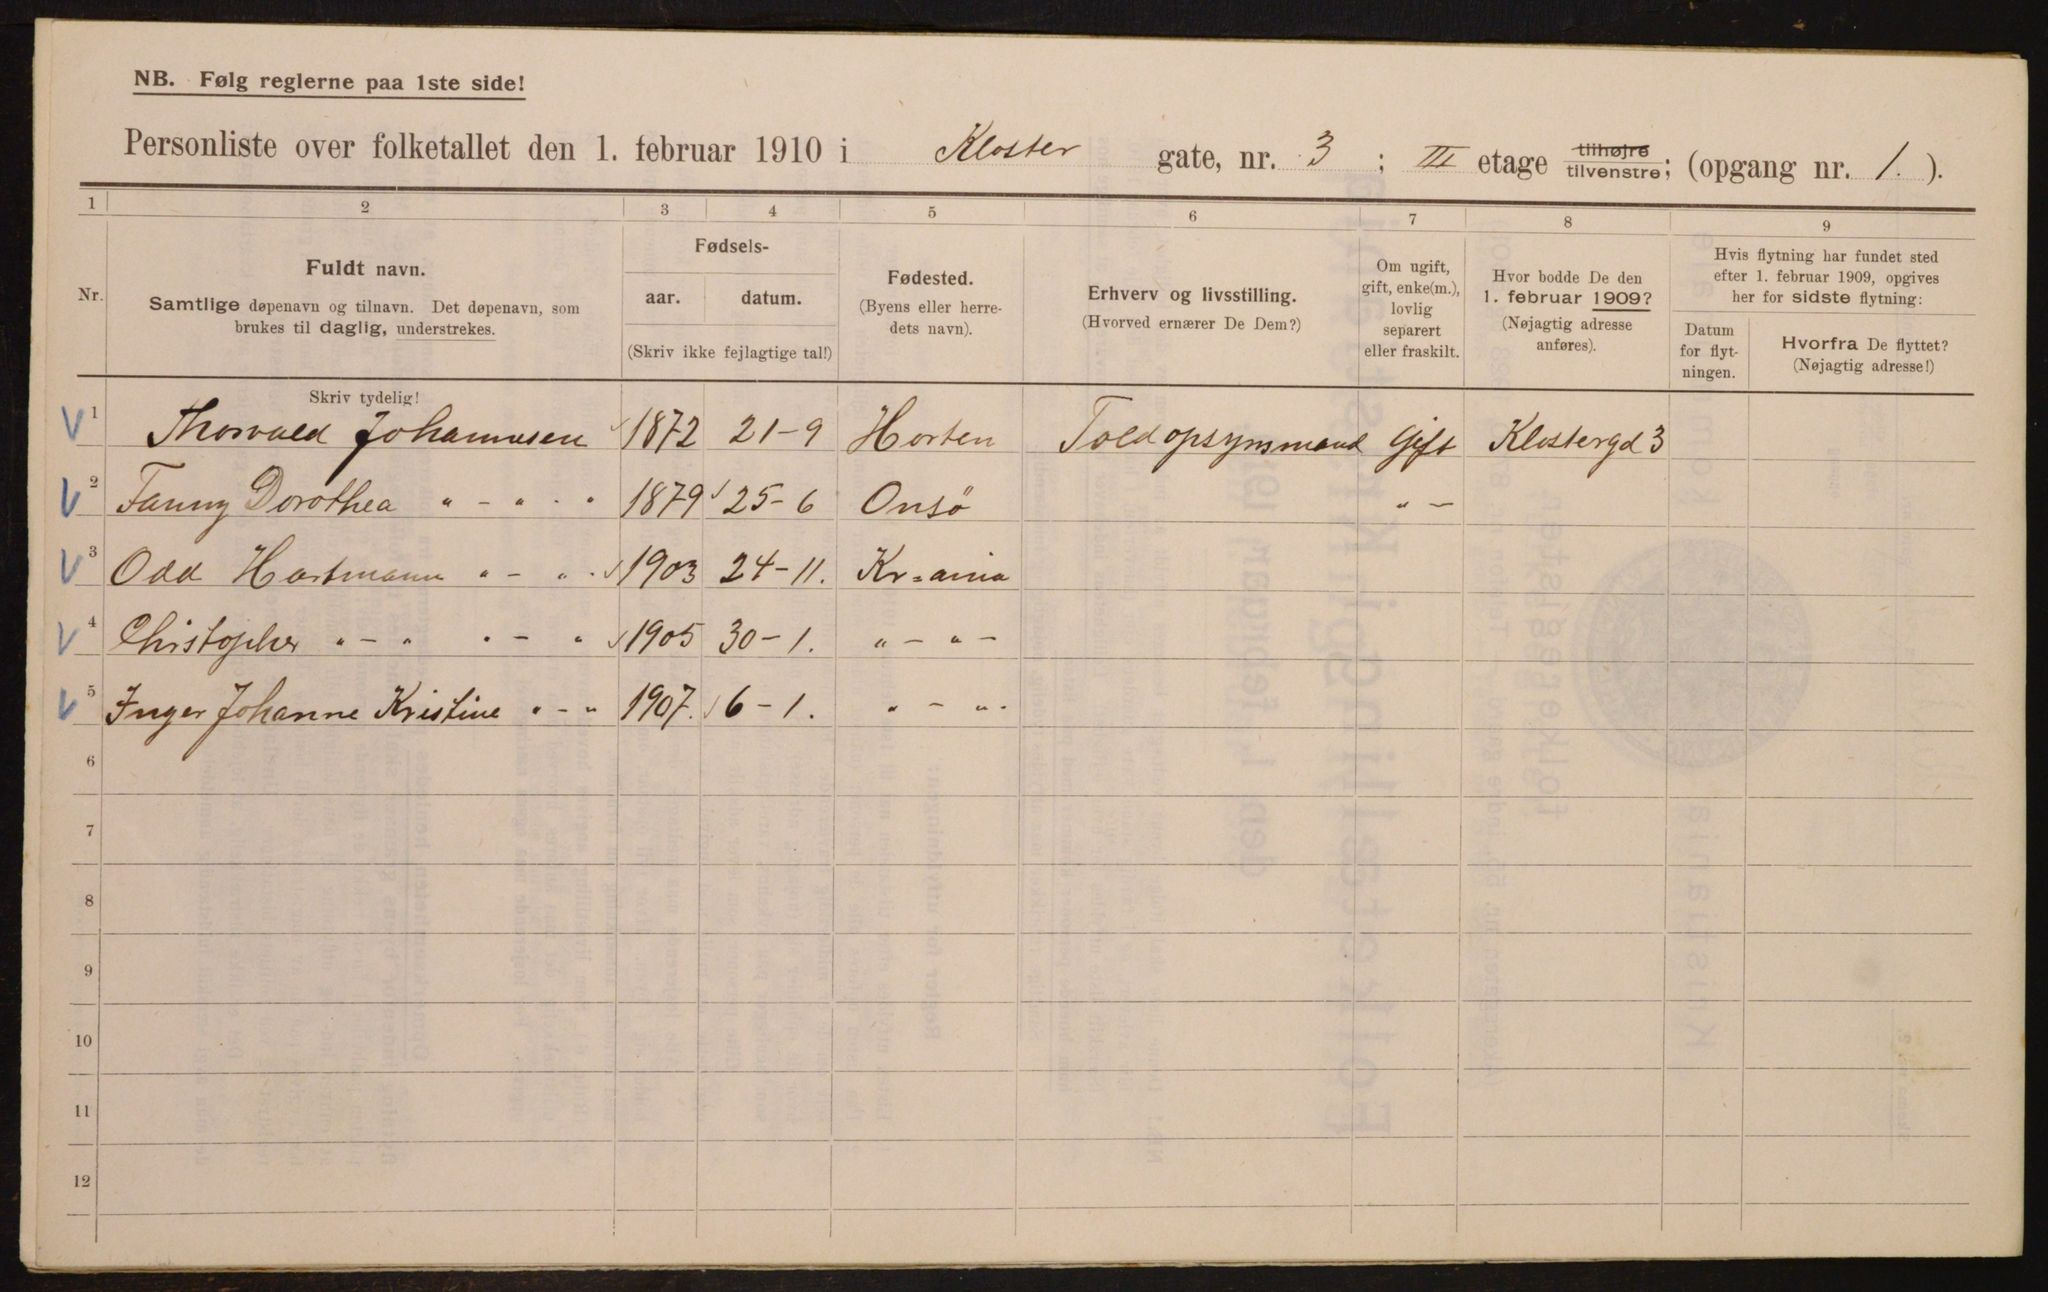 NB. Følg reglerne paa 1ste side!
Personliste over folketallet den 1. februar 1910 i Kloster gate, nr. 3 ; III etage tilhøjre tilvenstre; (opgang nr. 1. ).
1 2 3 4 5 6 7 8 9
Nr.
Fuldt navn.
Samtlige døpenavn og tilnavn. Det døpenavn, som
brukes til daglig, understrekes.
Fødsels-
aar. datum.
(Skriv ikke fejlagtige tal!)
Fødested.
(Byens eller herre-
dets navn).
Erhverv og livsstilling.
(Hvorved ernærer De Dem?)
Om ugift,
gift, enke(m.),
lovlig
separert
eller fraskilt.
Hvor bodde De den
1. februar 1909?
(Nøjagtig adresse
anføres).
Hvis flytning har fundet sted
efter 1. februar 1909, opgives
her for sidste flytning:
Datum
for flyt-
ningen.
Hvorfra De flyttet?
(Nøjagtig adresse!)
Skriv tydelig!
1 Thorvald Johannesen 1872 21-9 Horten Toldopsynsmand Gift Klostergd 3
2 Fanny Dorothea " - " - " 1879 25-6 Onsö " -
3 Odd Hartmann " - " - 1903 24-11. Kr=ania
4 Christopher " - " " - " 1905 30-1. " - " -
5 Inger Johanne Kristine " - " 1907. 6-1. " - " -
6
7
8
9
10
11
12